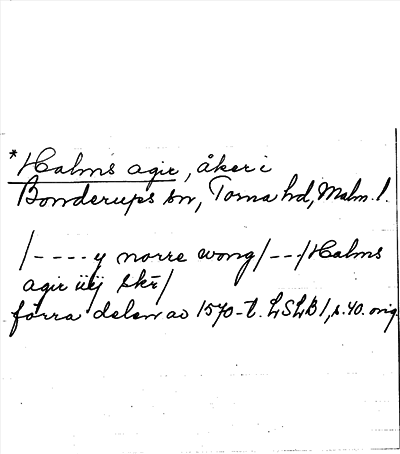 *Halms agir, åker i
Bonderups sn, Torna hd, Malm. l.
/----y norre wong/---/Halms
agir iiij skr/
förra delen av 1570-t. LSLB 1, s. 40. orig.